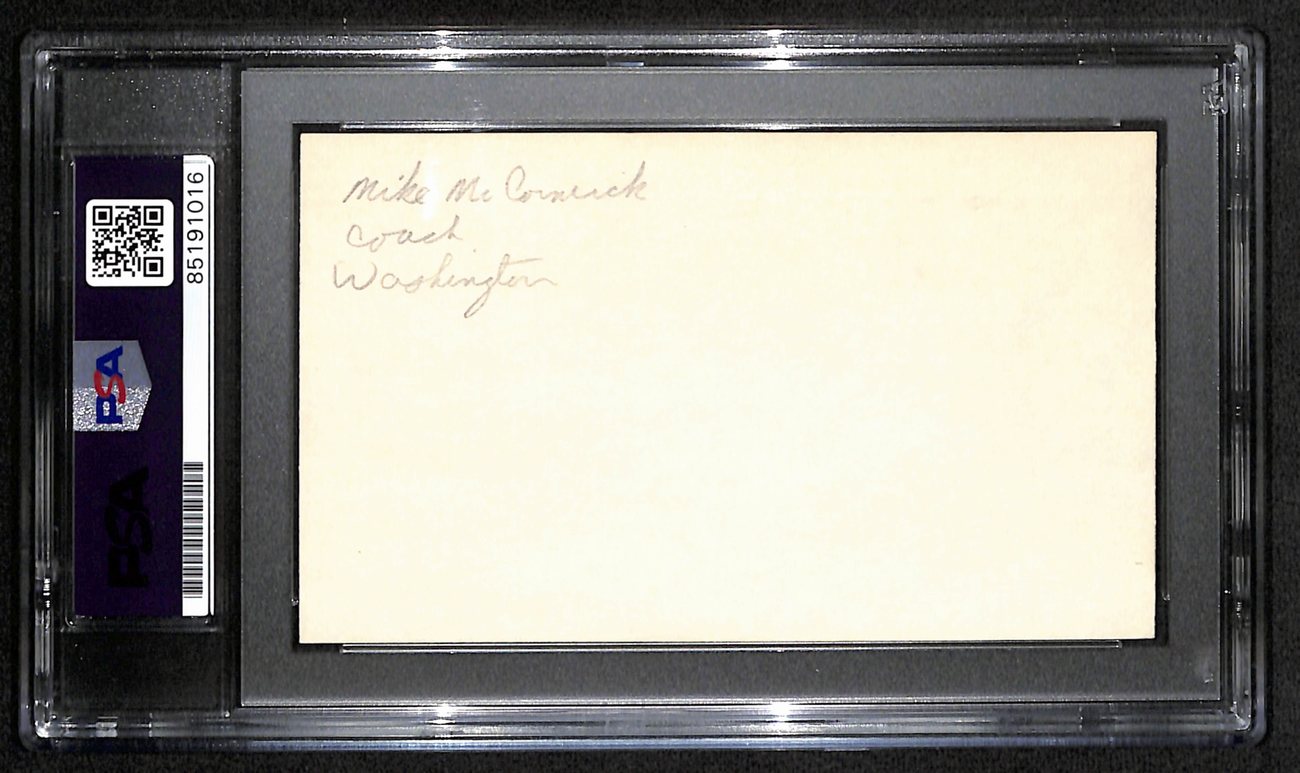 Mike McCormick
Coach
Washington
85191016
PSA
PSA